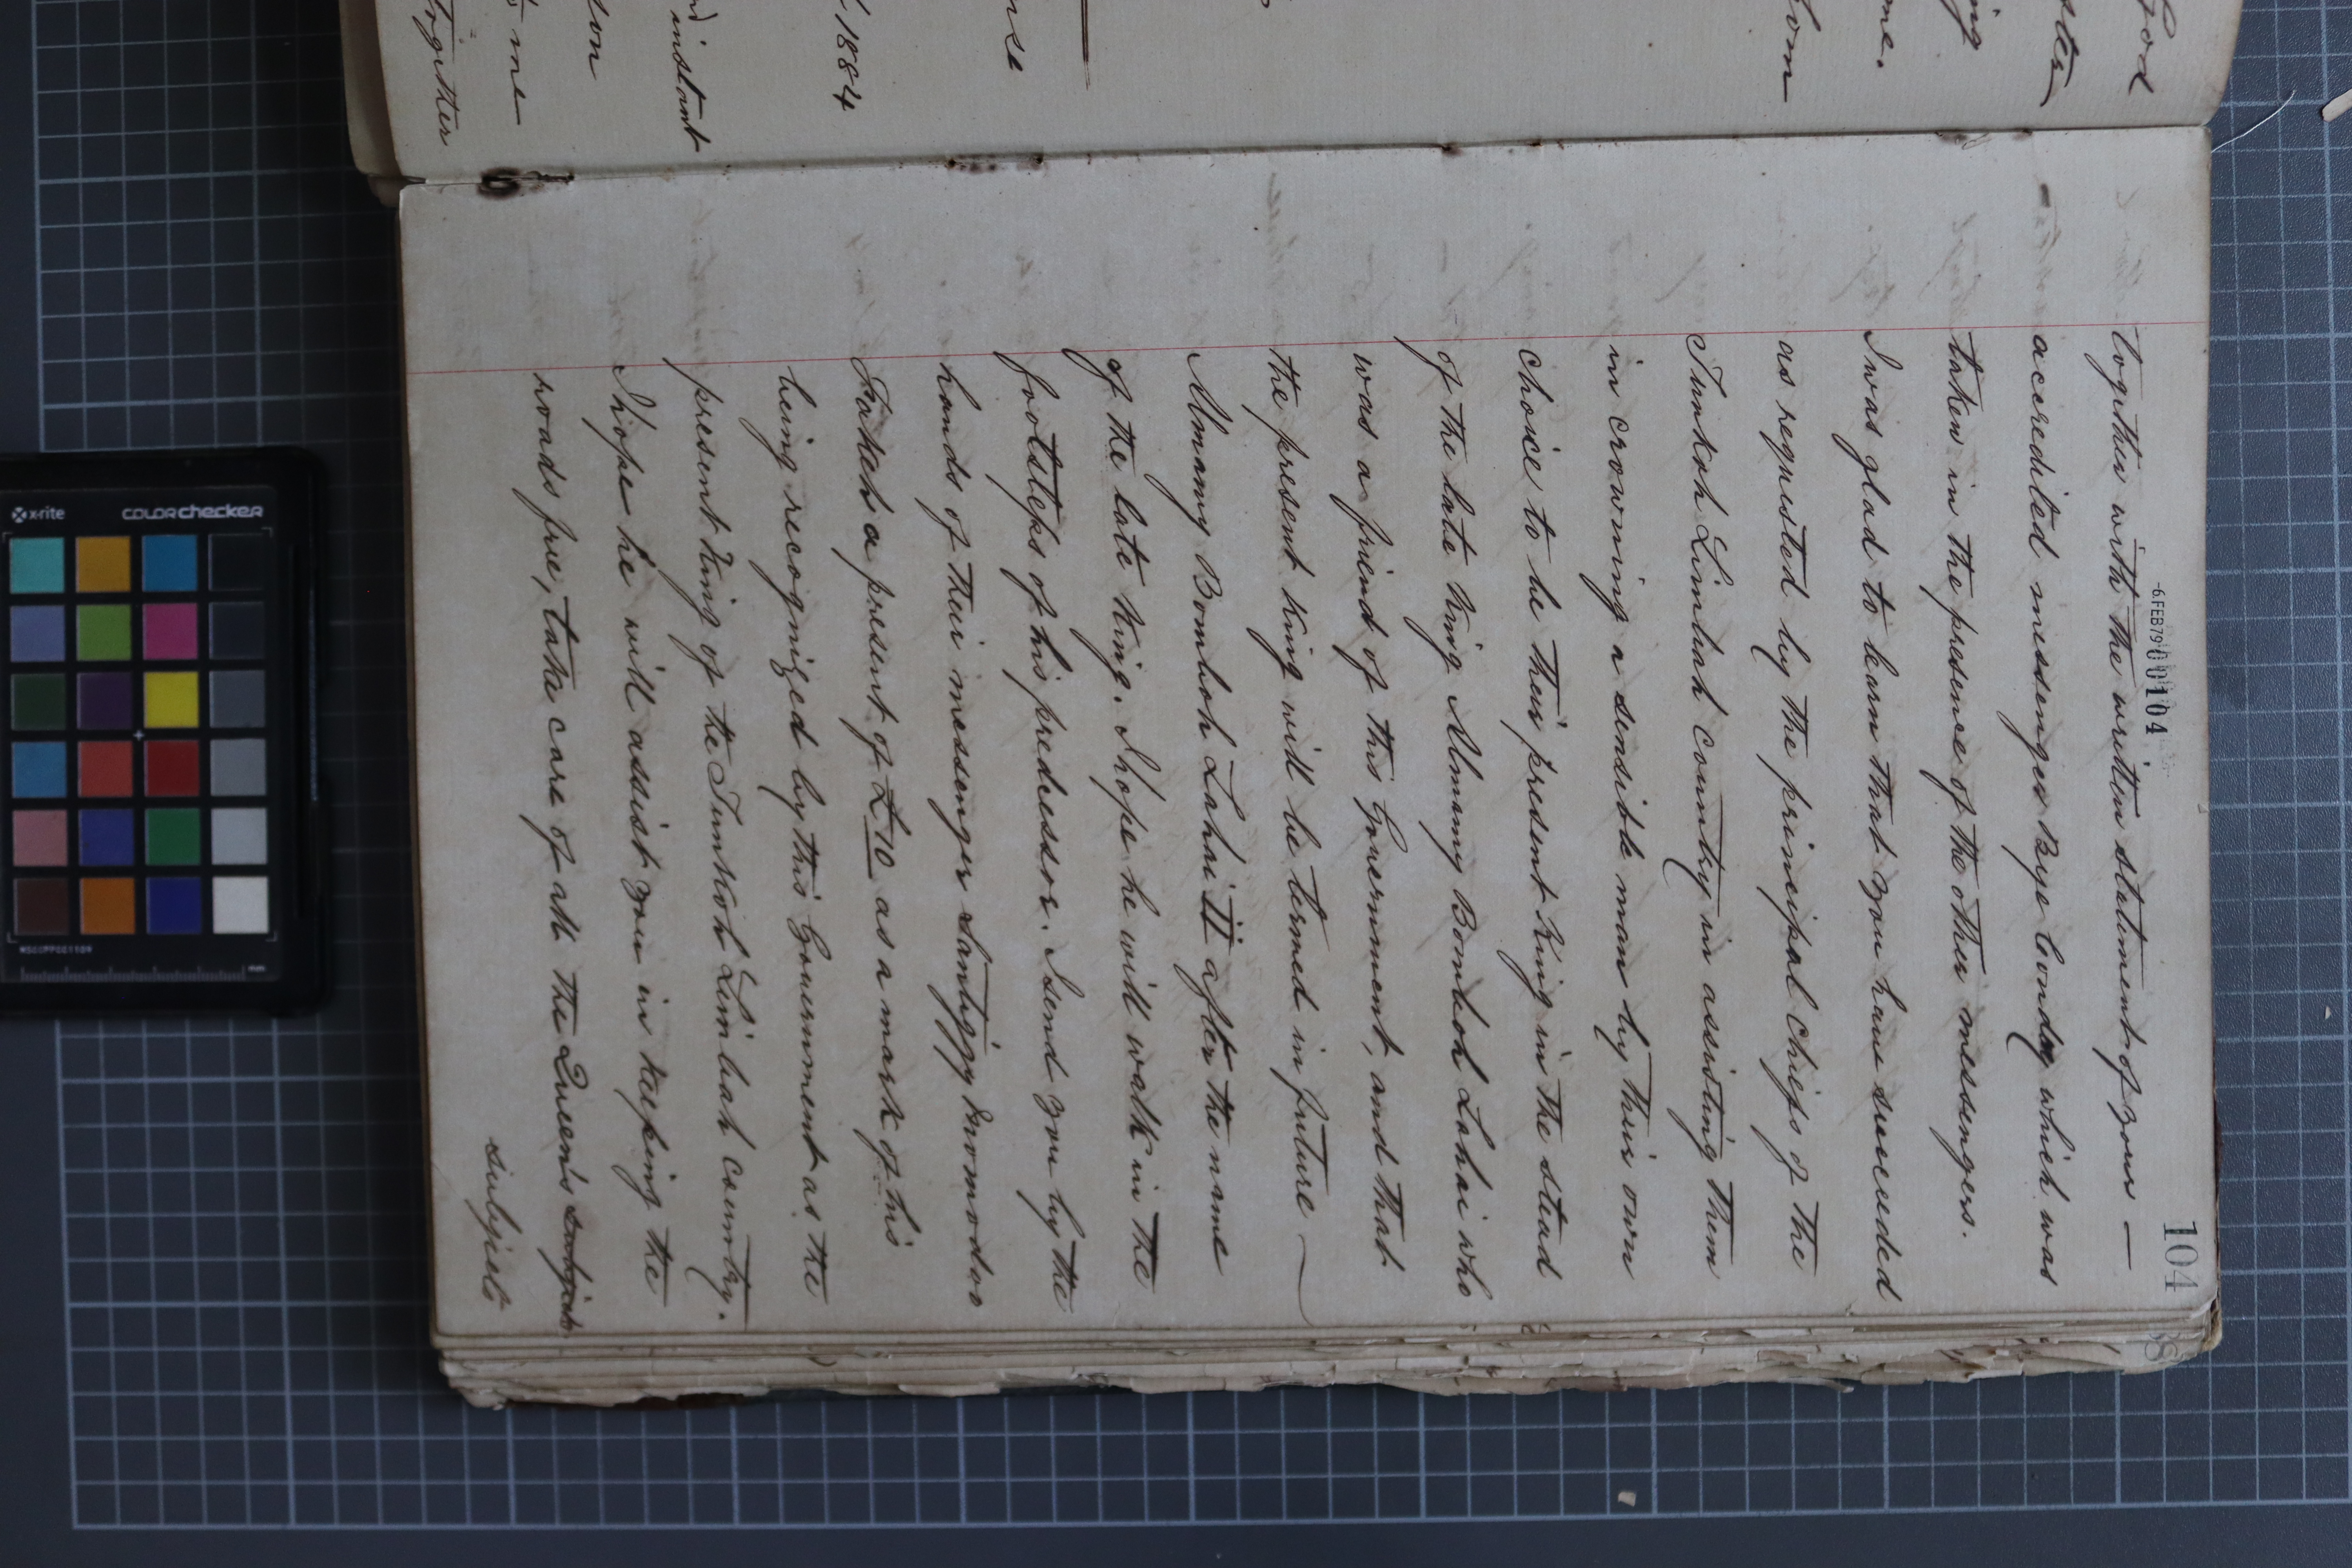 God
ster
ing
me.
om
nse
1884
instant
son
me
together
-6 FEB 79 000104
104
together with the written statement of your —
accredited messenger Beye Conday which was
taken in the presence of the other messengers.
I was glad to learn that you have succeeded
as requested by the principal Chiefs of the
Tunkoh Limbah country in assisting them
in crowning a sensible man by their own
choice to be their present King in the stead
of the late King Almamy Bomboh Lahai who
was a friend of this Government, and that
the present King will be termed in future —
Almamy Bomboh Lahai II after the name
of the late King. I hope he will walk in the
footsteps of his predecessor. I send you by the
hands of their messenger Santiggy Mormodoo
Fateh a present of £10 as a mark of his
being recognized by this Government as the
present King of the Tunkoh Limbah country.
I hope he will assist you in keeping the
roads free, take care of all the Queen's subjects
subjects
x-rite
colorchecker
mm